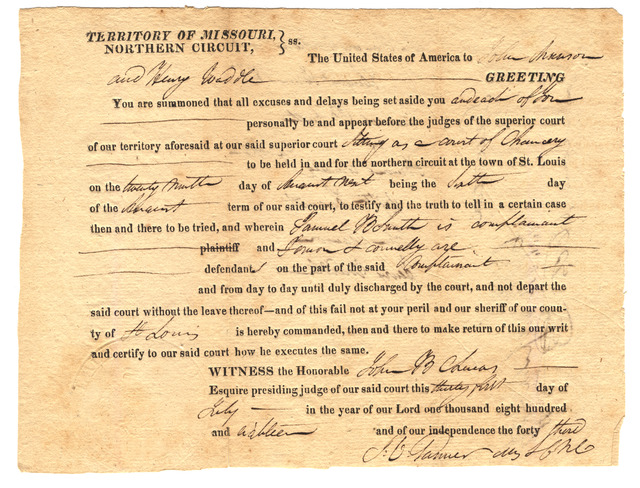 TERRITORY OF MISSOURI,
NORTHERN CIRCUIT, } ss.
The United States of America to John
and Henry Waddle GREETING
You are summoned that all excuses and delays being set aside you and each of you
personally be and appear before the judges of the superior court
of our territory aforesaid at our said superior court sitting as a court of Chancery
to be held in and for the northern circuit at the town of St. Louis
on the twenty ninth day of August next being the Sixth day
of the August term of our said court, to testify and the truth to tell in a certain case
then and there to be tried, and wherein Samuel B Smith is complainant
plaintiff and & Connelly are
defendants on the part of the said Complainant
and from day to day until duly discharged by the court, and not depart the
said court without the leave thereof—and of this fail not at your peril and our sheriff of our coun-
ty of St Louis is hereby commanded, then and there to make return of this our writ
and certify to our said court how he executes the same.
WITNESS the Honorable John B C Lucas
Esquire presiding judge of our said court this thirty first day of
July in the year of our Lord one thousand eight hundred
and and of our independence the forty third